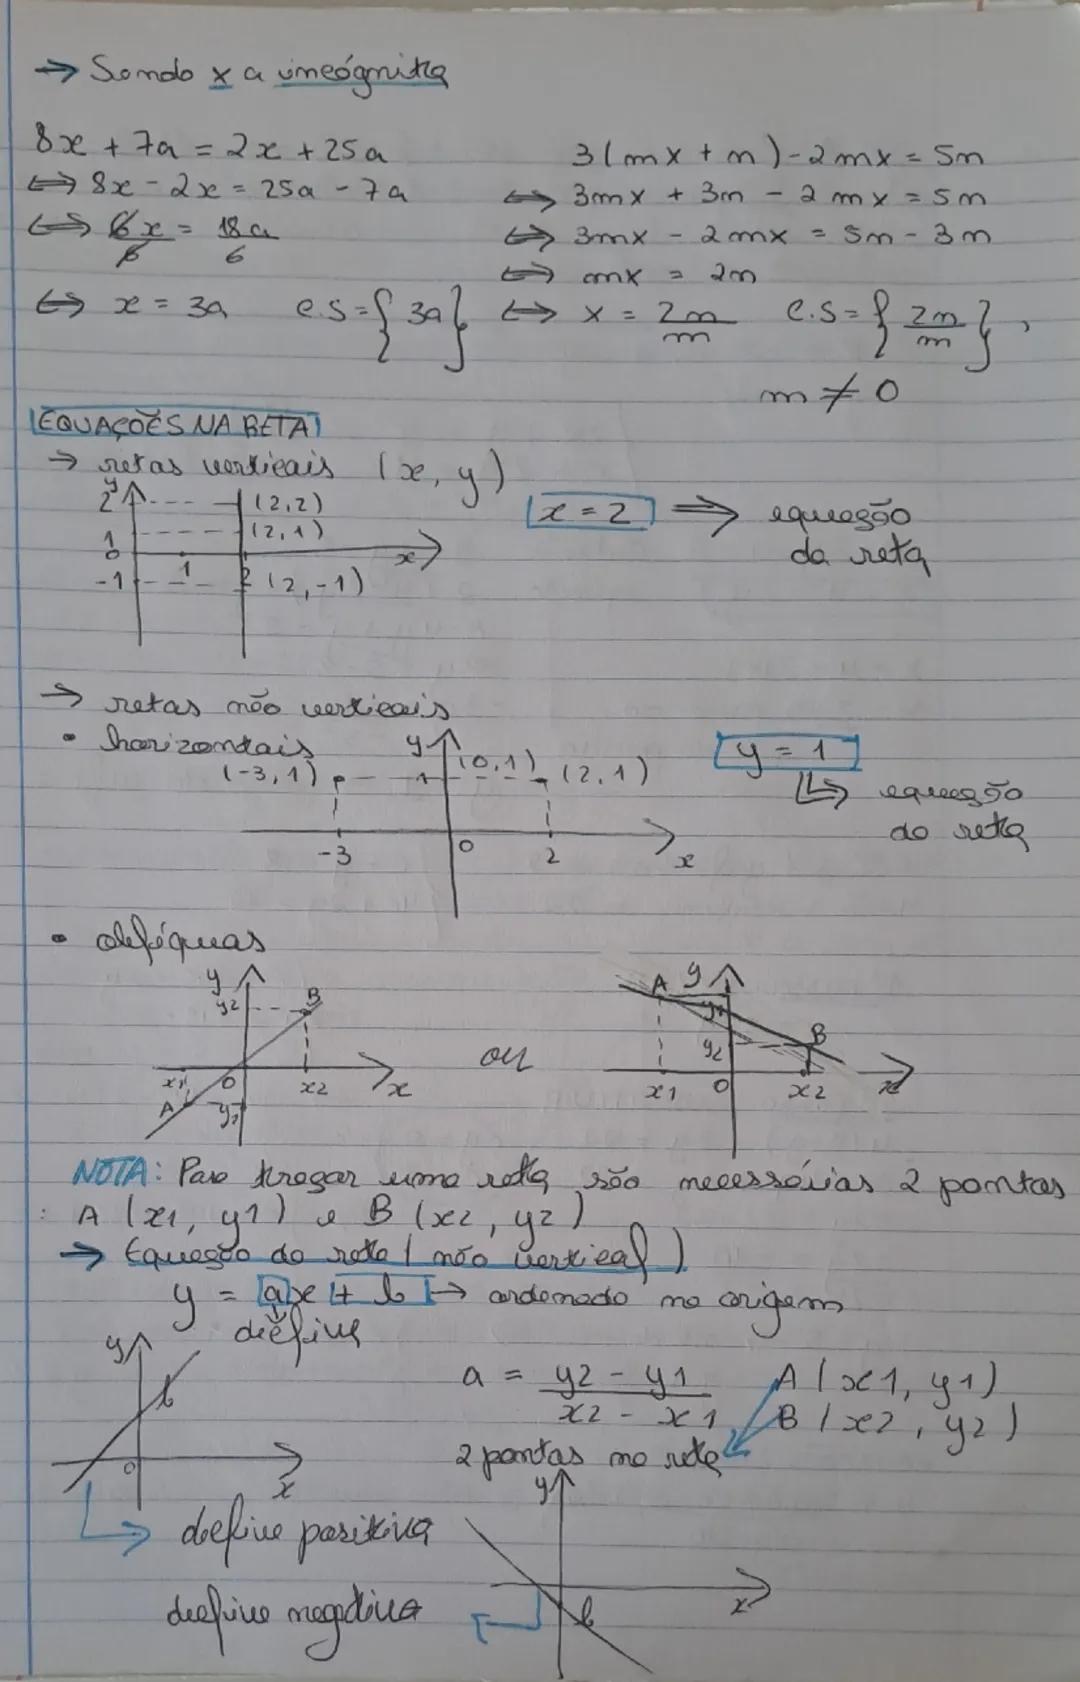 → Sendo x a incógnita
8x + 7a = 2x + 25a
⇔ 8x - 2x = 25a - 7a
⇔ 6x/6 = 18a/6
⇔ x = 3a   C.S = {3a}
3(mx + n) - 2mx = 5n
⇔ 3mx + 3n - 2mx = 5n
⇔ 3mx - 2mx = 5n - 3n
⇔ mx = 2n
⇔ x = 2n/m   C.S = {2n/m},
m ≠ 0
EQUAÇÕES NA RETA
→ retas verticais (x, y)
y
2 (2,2)
1 (2,1)
0 1 2 x
-1 (2,-1)
x = 2 ⇒ equação
da reta
→ retas não verticais
• horizontais
y
(-3,1) 1 (0,1) (2,1)
-3 0 2 x
y = 1
↳ equação
da reta
• oblíquas
y
y2 B
x1 0 x2 x
A y1
ou
A y
y1
y2 B
x1 0 x2 x
NOTA: Para traçar uma reta são necessárias 2 pontos
: A (x1, y1) e B (x2, y2)
→ Equação da reta (não vertical)
y = ax + b → ordenado na origem
declive
y
b
0 x
a = y2 - y1 / x2 - x1
A (x1, y1)
B (x2, y2)
2 pontos na reta
declive positivo
y
x
b
declive negativo